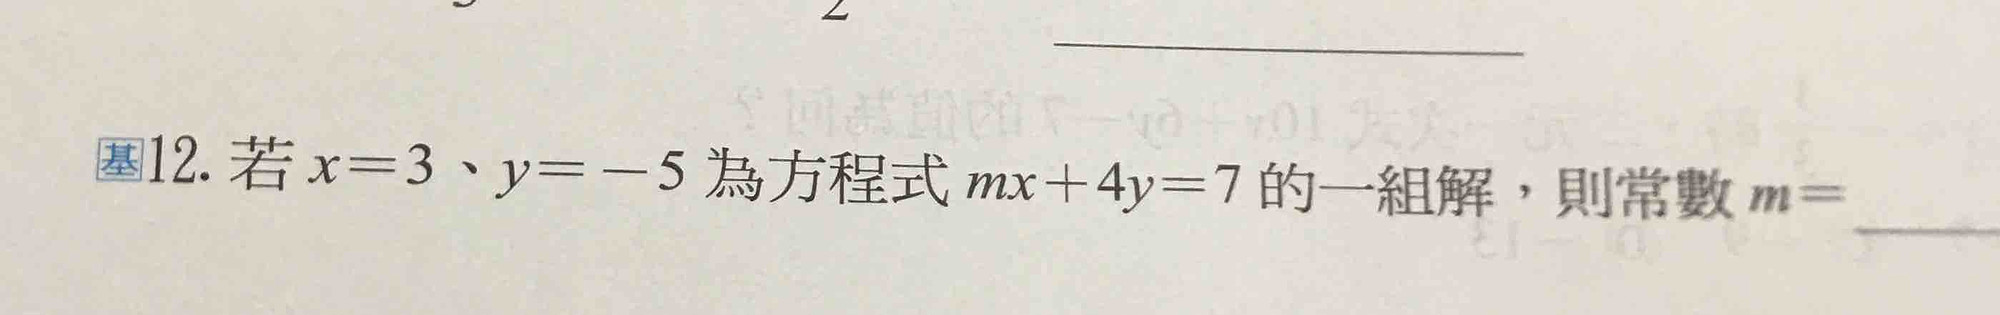 基12. 若 x=3、y=－5 為方程式 mx+4y=7 的一組解，則常數 m=